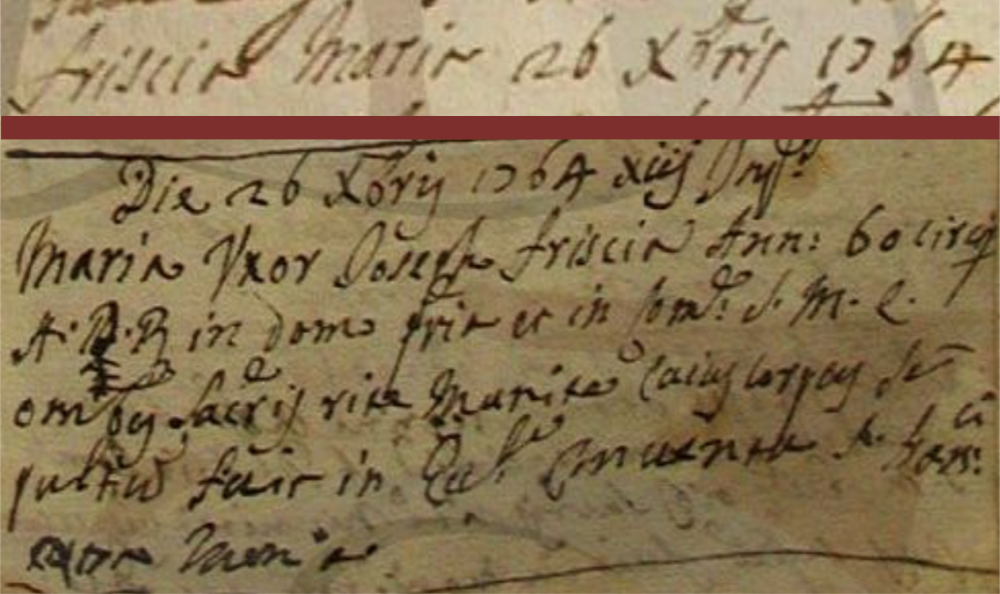 Friscia Maria 26 Xbris 1764
Die 26 Xbris 1764 xiij Ind:
Maria Uxor Joseph Friscia Ann: 60 circ
A. D. R in domo pria et in com: S. M. E.
omibus sacris rite munita Cuius corpus se
pultum fuit in Eccl
Maria